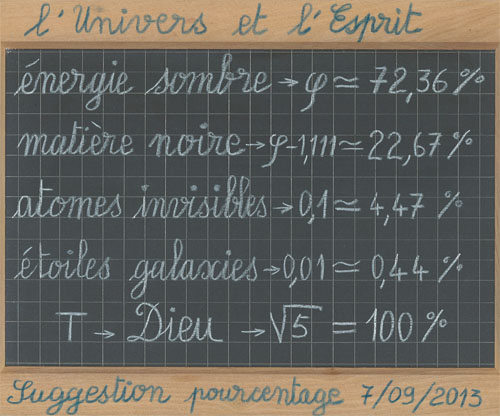 l'Univers et l'Esprit
énergie sombre → φ ≃ 72,36 %
matière noire → φ-1,111 ≃ 22,67 %
atomes invisibles → 0,1 ≃ 4,47 %
étoiles galaxies → 0,01 ≃ 0,44 %
T → Dieu → √5 = 100 %
Suggestion pourcentage 7/09/2013